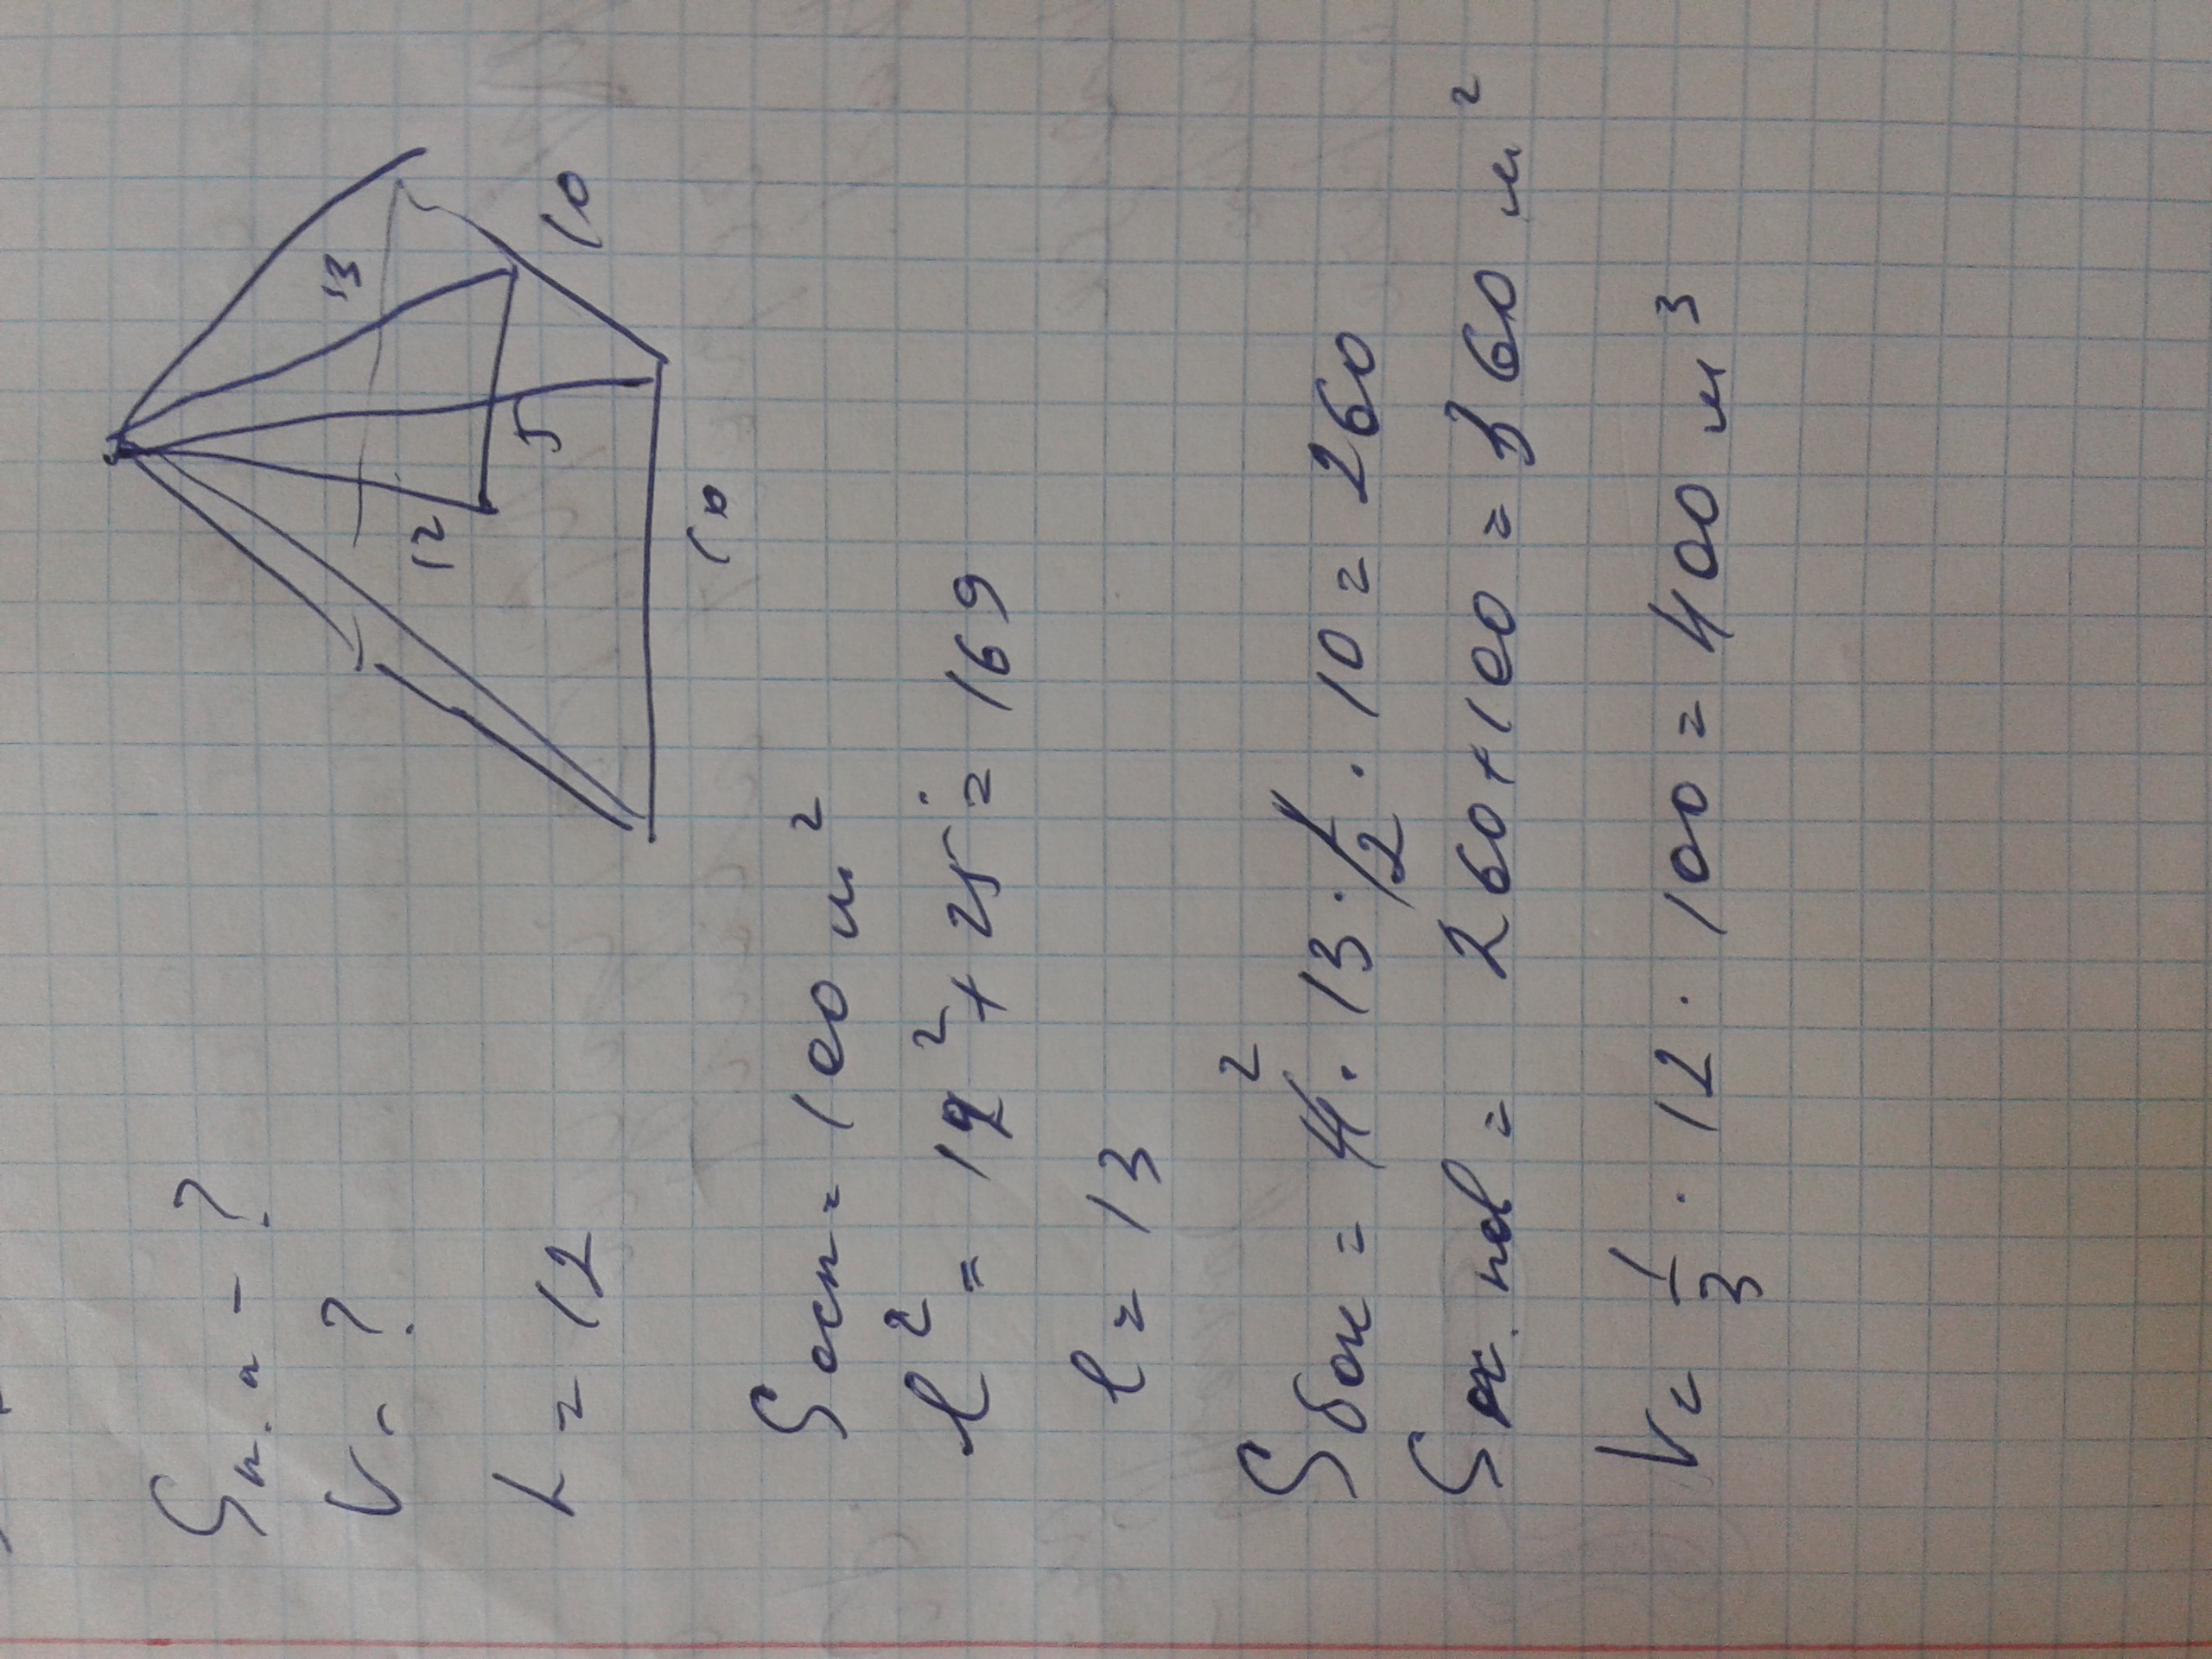 Sп.п - ?
V - ?
h = 12
13
12
5
10
10
Sосн = 100 м²
l² = 12² + 25 = 169
l = 13
Sбок = 4 · 13 · 1/2 · 10 = 260
2
S пов = 260 + 100 = 360 м²
V = 1/3 · 12 · 100 = 400 м³